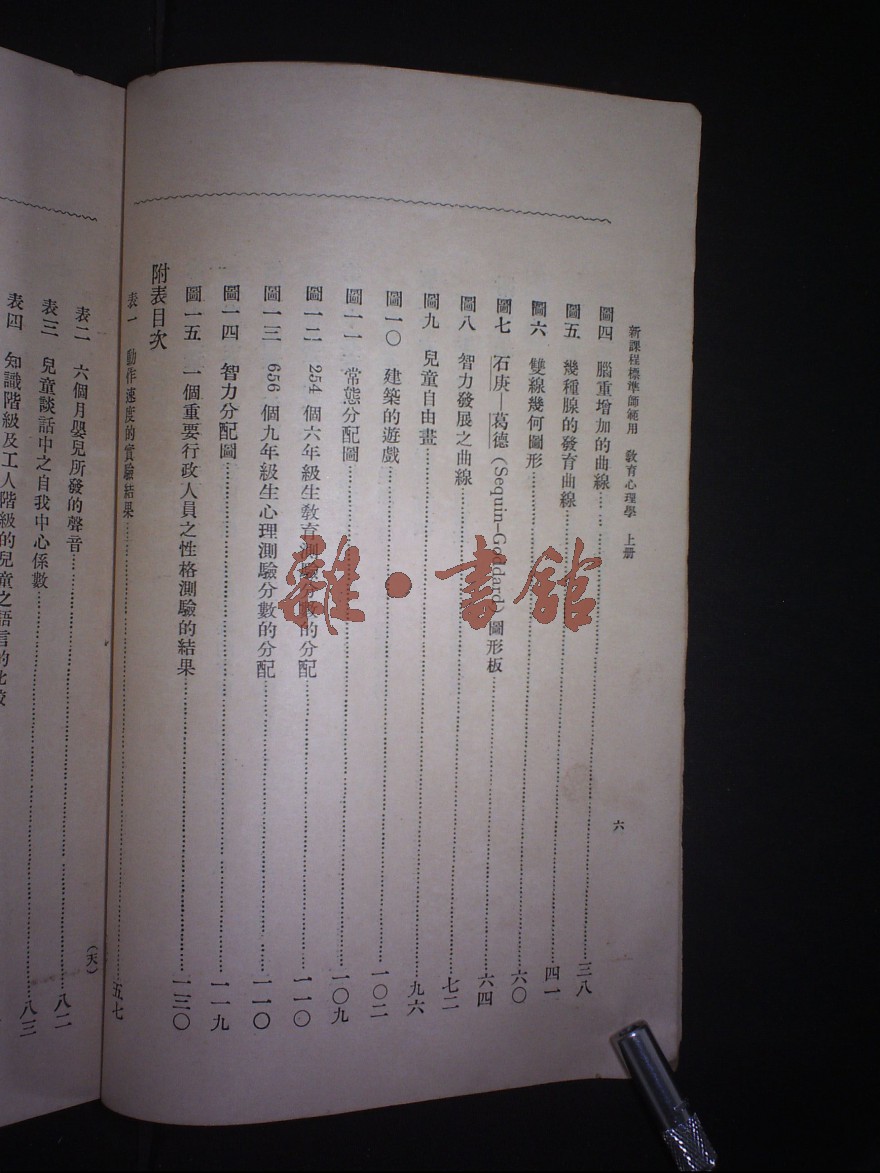 新課程標準師範用　教育心理學　上册
六
圖四　腦重增加的曲線……三八
圖五　幾種腺的發育曲線……四一
圖六　雙線幾何圖形……六〇
圖七　石庚—葛德（Sequin-Goddard）圖形板……六四
圖八　智力發展之曲線……七二
圖九　兒童自由畫……九六
圖一〇　建築的遊戲……一〇二
圖一一　常態分配圖……一〇九
圖一二　254 個六年級生教育測驗分數的分配……一一〇
圖一三　656 個九年級生心理測驗分數的分配……一一〇
圖一四　智力分配圖……一一九
圖一五　一個重要行政人員之性格測驗的結果……一三〇
附表目次
表一　動作速度的實驗結果……五七
表二　六個月嬰兒所發的聲音……八二
（天）
表三　兒童談話中之自我中心係數……八三
表四　知識階級及工人階級的兒童之語言的比較
雜·書館